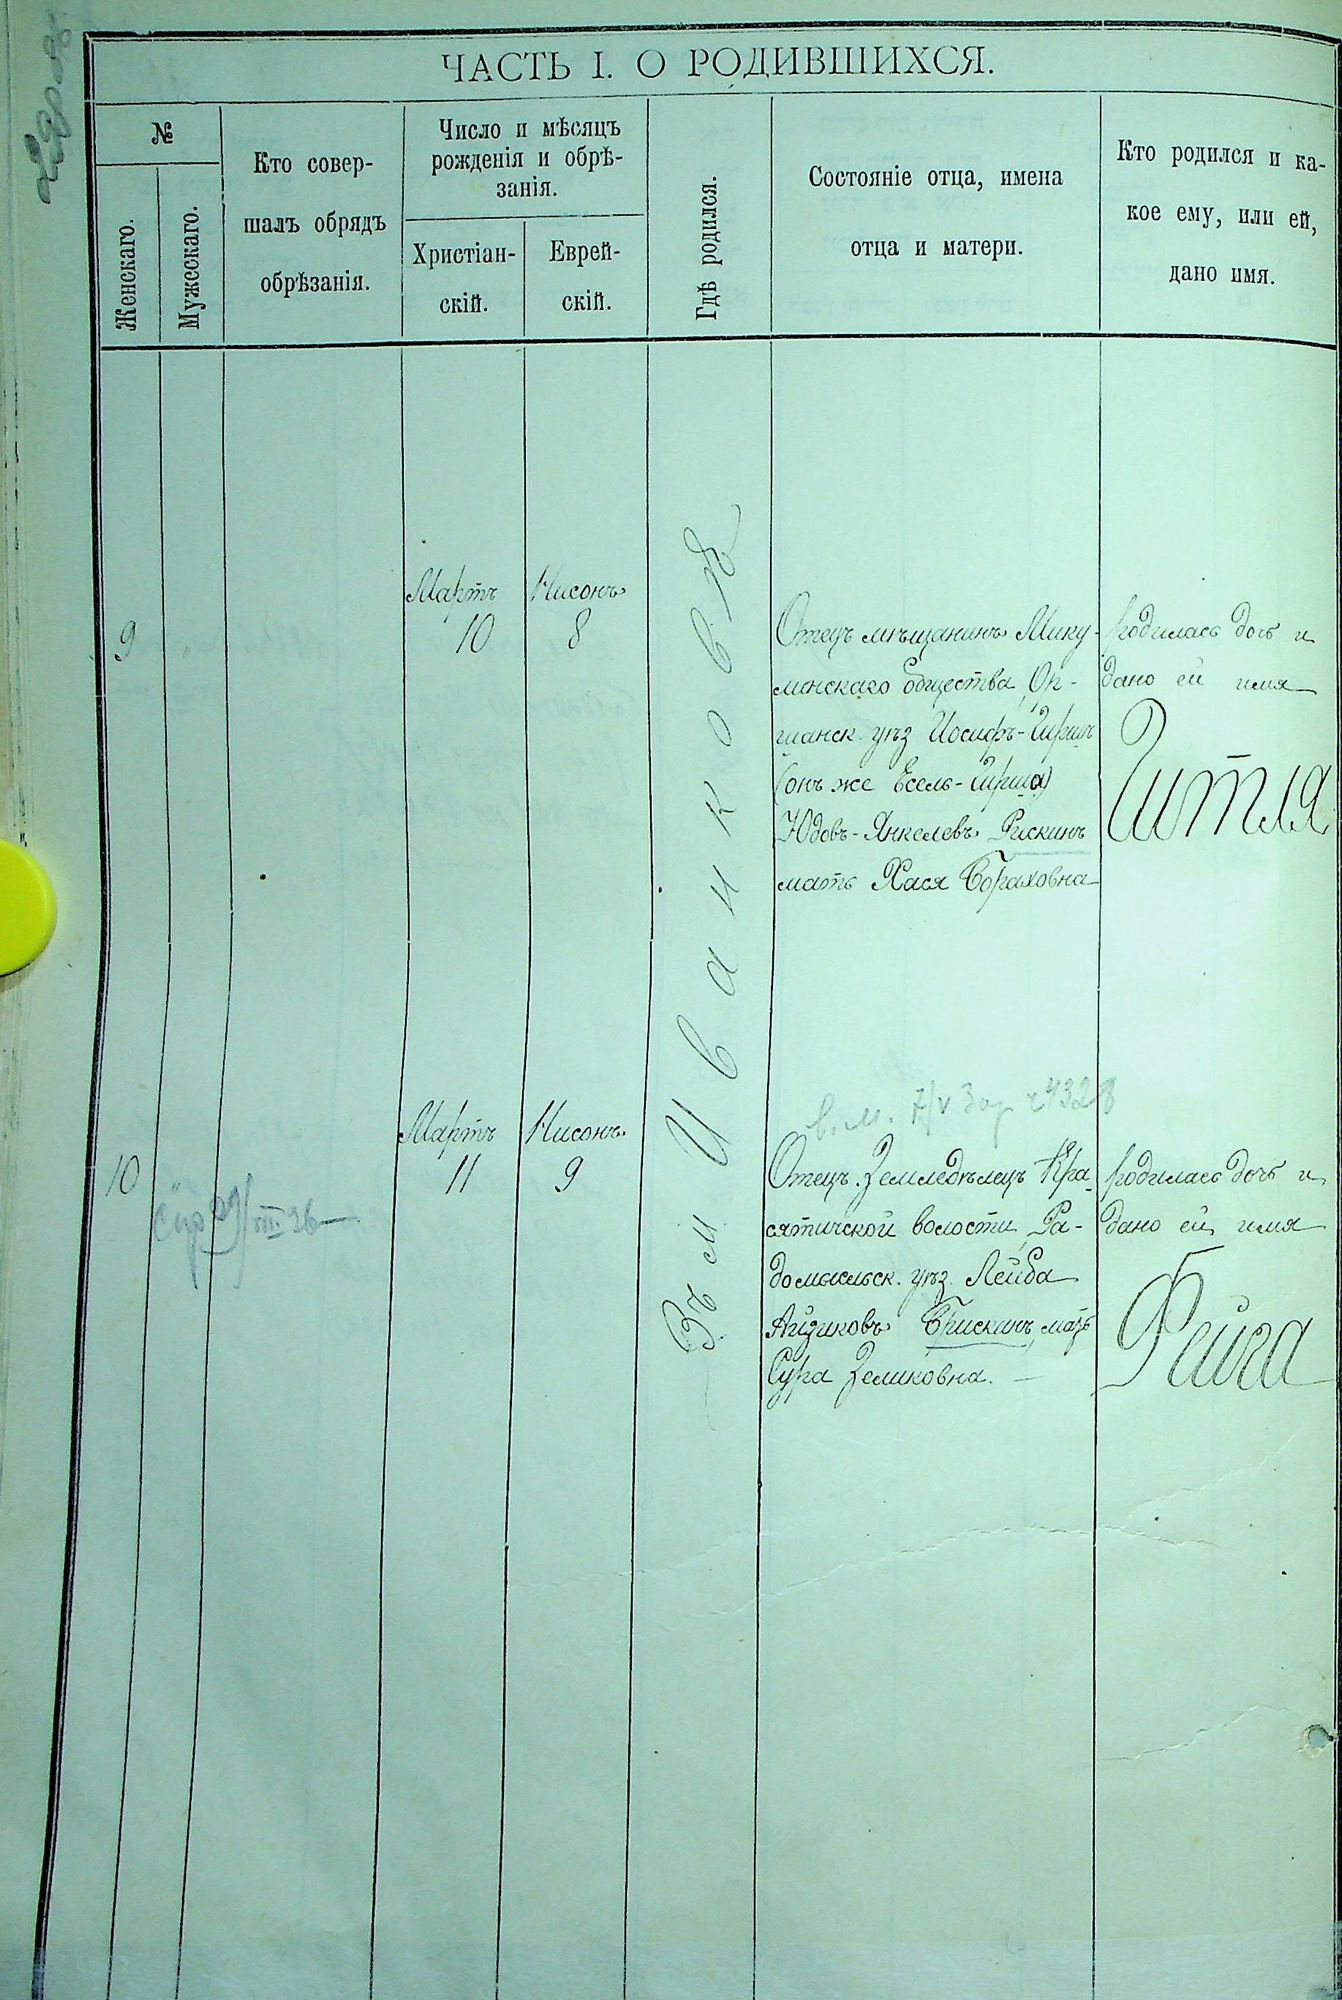 ЧАСТЬ I. О РОДИВШИХСЯ.
№
Женскаго.
Мужескаго.
Кто совер-
шалъ обрядъ
обрѣзанія.
Число и мѣсяцъ
рожденія и обрѣ-
занія.
Христіан-
скій.
Еврей-
скій.
Гдѣ родился.
Состояніе отца, имена
отца и матери.
Кто родился и ка-
кое ему, или ей,
дано имя.
9
Мартъ
10
Нисонъ
8
Въ м Иванковѣ
Отецъ мѣщанинъ Мику-
линскаго общества, Ор-
шанск. уѣз Иосифъ-Гиршъ
(онъ же Есель-Гирша)
Юдовъ-Янкелевъ Рискинъ
мать Хася Бораховна
родилась дочь и
дано ей имя
Гитля
10
Мартъ
11
Нисонъ
9
Отецъ Земледѣлецъ Кра-
сятичской волости, Ра-
домысльск. уѣз. Лейба
Айзиковъ Брискинъ, мать
Сура Зеликовна.
родилась дочь и
дано ей имя
Фейга